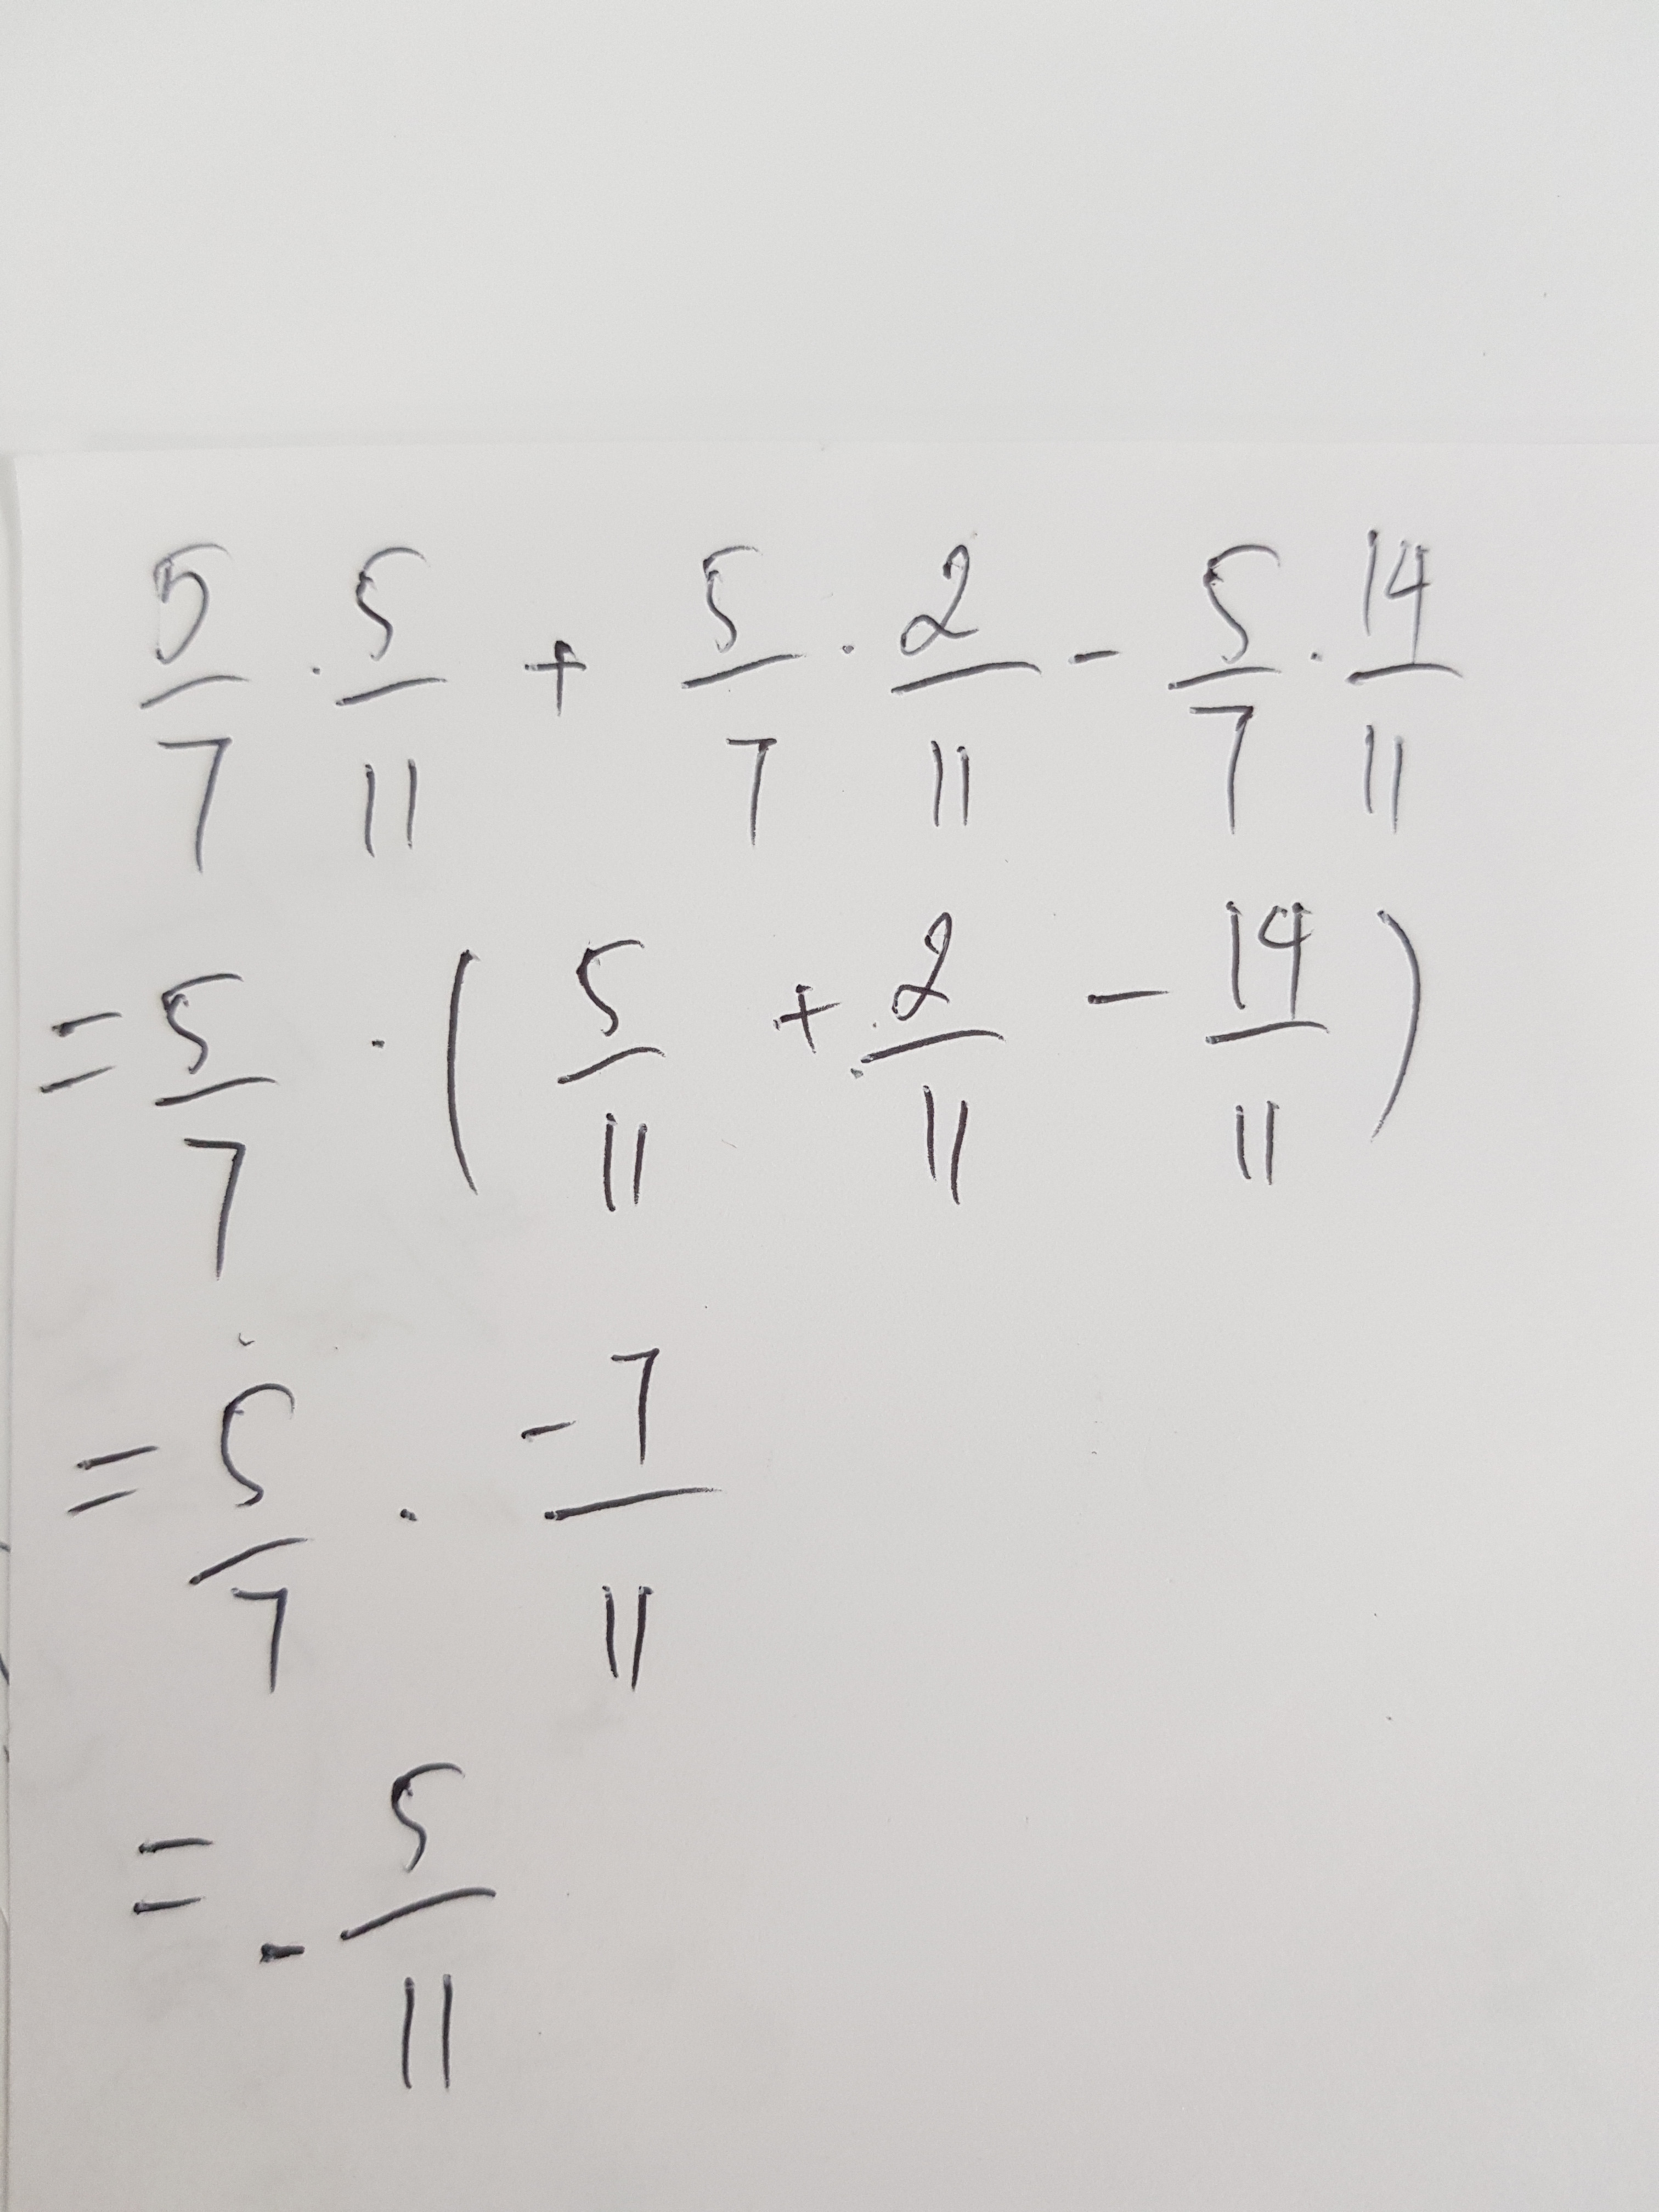 5/7 . 5/11 + 5/7 . 2/11 - 5/7 . 14/11
= 5/7 . ( 5/11 + 2/11 - 14/11 )
= 5/7 . -7/11
= - 5/11